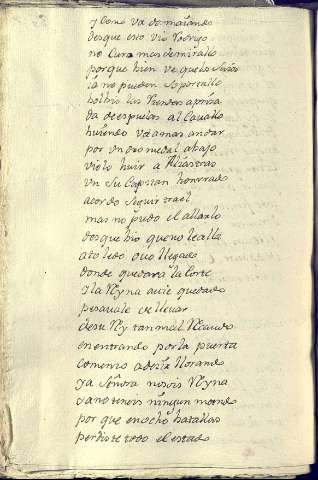 y como va desmaiando
desque esto vio Rodrigo
no cura mas de mirallo
porque bien ve que los suios
ia no pueden soportallo
boluio las riendas aprisa
da de espuelas al cauallo
huiendo va a mas andar
por un arenal abajo
violo huir Alcastras
un su Capitan honrrado
acordo seguir tras el
mas no pudo el alcanzallo
desque bio que no le alla
a toledo ouo llegado
donde quedara la Corte
y la Reyna auie quedado
pesauale de lleuar
de su Rey tan mal Recaudo
en entrando por la puerta
comenzo a dezir llorando
ya Señora no sois Reyna
ya no teneis ningun mando
por que en ocho batallas
perdiste todo el estado